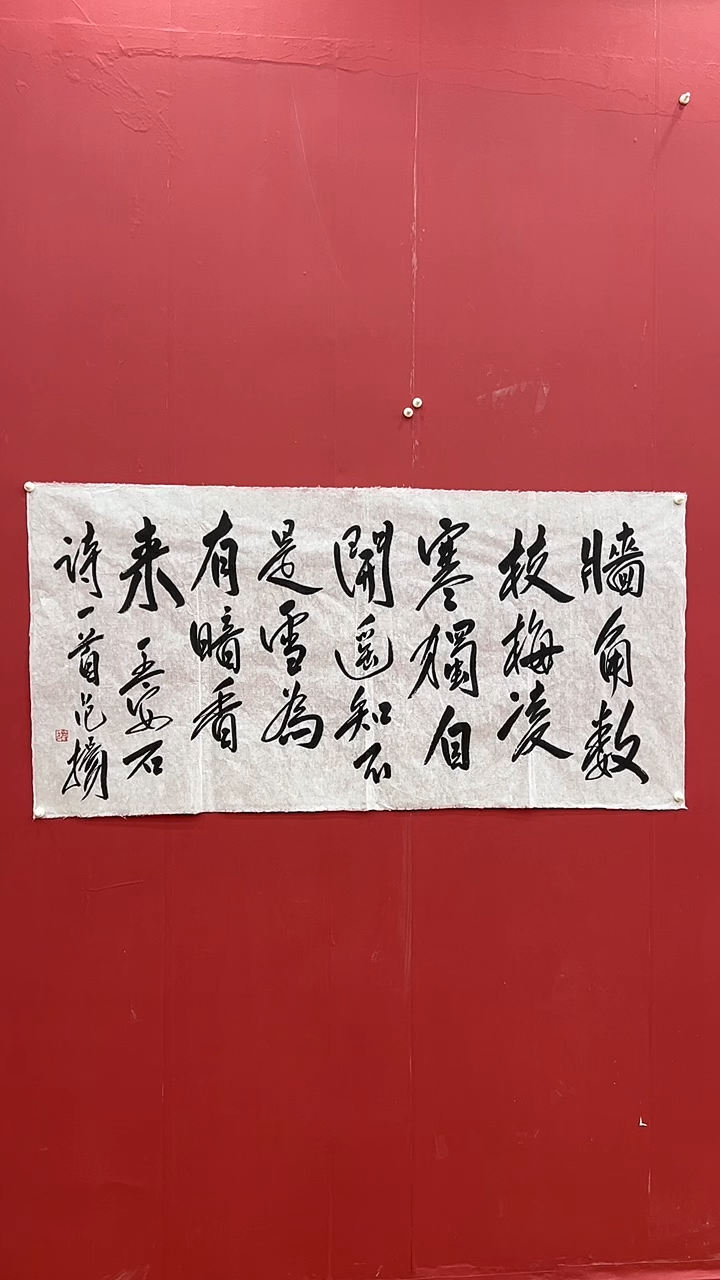 牆角数
枝梅凌
寒獨自
開遥知不
是雪為
有暗香
来 王安石
诗一首范